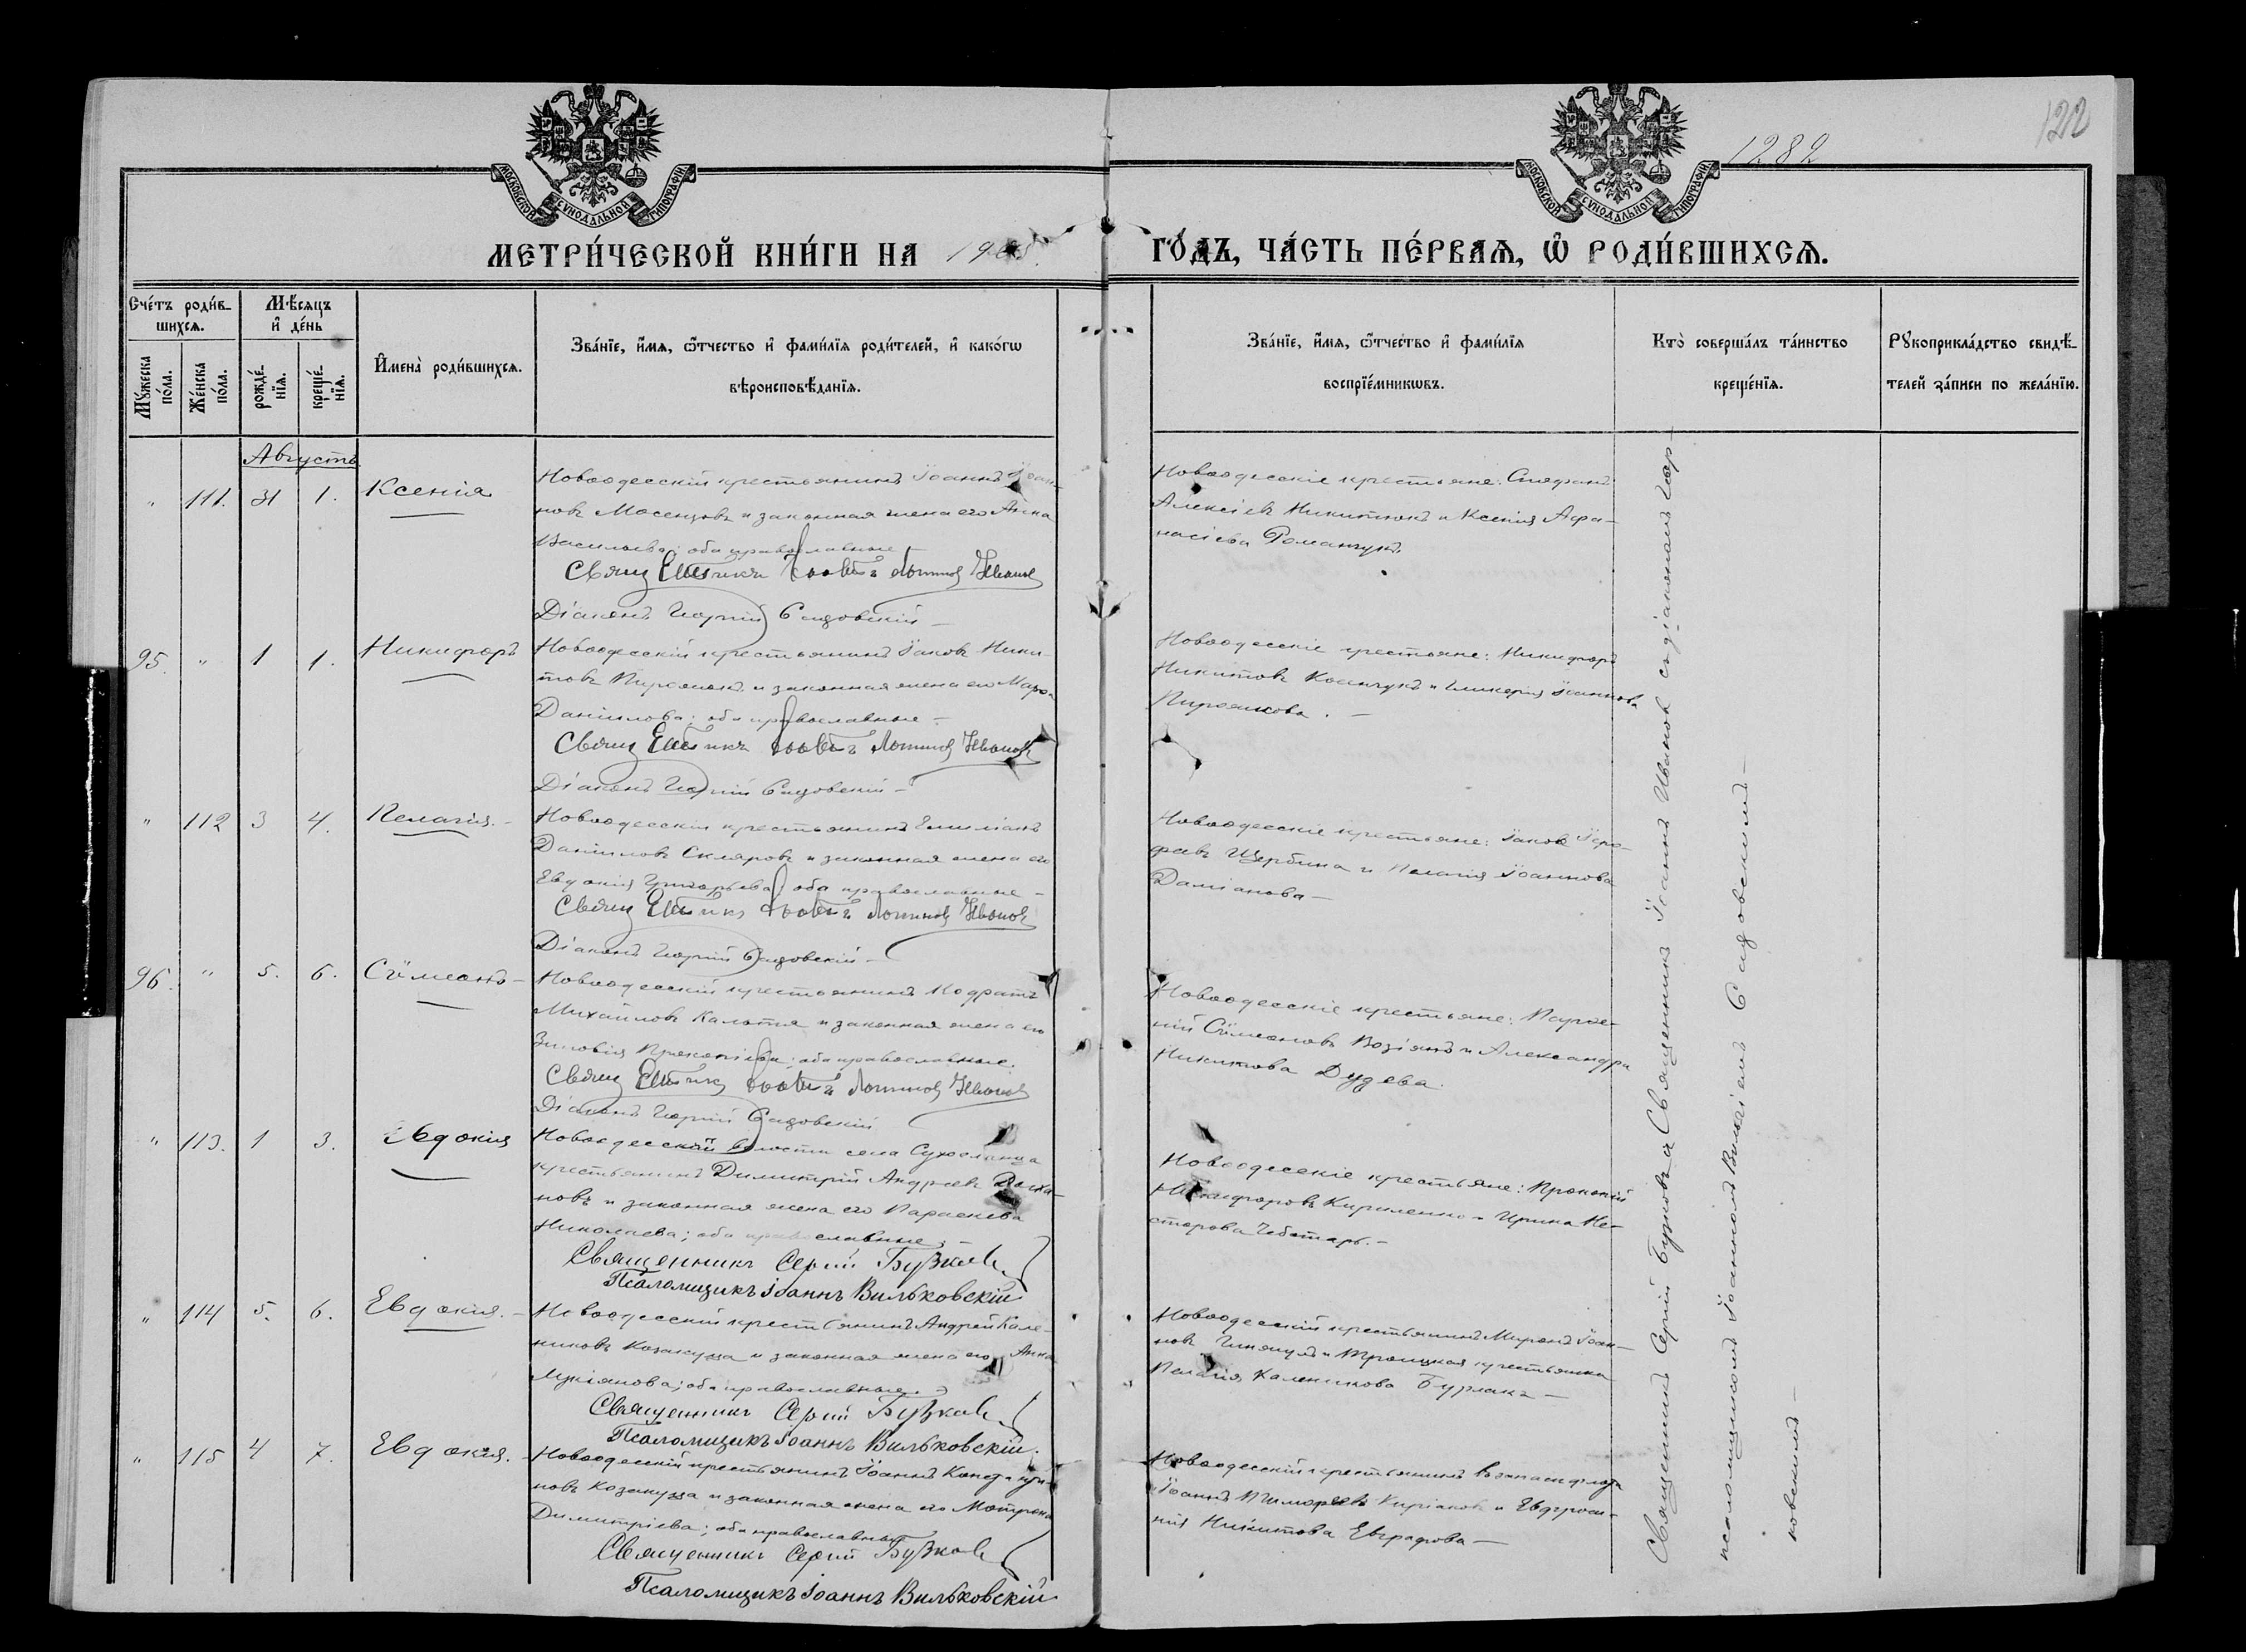 122
1282
МОСКОВСКОЙ СѴНОДАЛЬНОЙ ТИПОГРАФІИ
МОСКОВСКОЙ СѴНОДАЛЬНОЙ ТИПОГРАФІИ
МЕТРИ́ЧЕСКОЙ КНИ́ГИ НА 1905
ГО́ДЪ, ЧА́СТЬ ПЕ́РВАѦ, Ѿ РОДИ́ВШИХСѦ.
Сче́тъ роди́в-
шихсѧ.
Мꙋ́жеска по́ла.
Же́нска по́ла.
Мѣ́сѧцъ
и҆ де́нь
рожде́-
нїѧ.
креще́-
нїѧ.
И҆мена̀ роди́вшихсѧ.
Зва́нїе, и҆́мѧ, ѻ҆́тчество и҆ фами́лїѧ роди́телей, и҆ како́гѡ
вѣроисповѣ́данїѧ.
Зва́нїе, и҆́мѧ, ѻ҆́тчество и҆ фами́лїѧ
воспрїе́мникѡвъ.
Кто̀ соверша́лъ та́инство
креще́нїѧ.
Рꙋкоприкла́дство свидѣ́-
телей за́писи по жела́нїю.
Августъ
" 111. 31 1. Ксенія
Новоодесскій крестьянинъ Іоаннъ Іоан-
новъ Мосенцовъ и законная жена его Анна
Васильева; оба православные
Діаконъ Георгій Садовскій
Новоодесскіе крестьяне: Стефанъ
Алексіевъ Никитюкъ и Ксенія Афа-
насіева Романчукъ.
95. " 1 1. Никифоръ
Новоодесскій крестьянинъ Іаковъ Ники-
товъ и законная жена его Марѳа
Даніилова; оба православные
Діаконъ Георгій Садовскій
Новоодесскіе крестьяне: Никифоръ
Никитовъ и Гликерія Іоаннова
" 112 3 4. Пелагія.
Новоодесскій крестьянинъ Емиліанъ
Даніиловъ Скляровъ и законная жена его
Евдокія Григорьева; оба православные
Діаконъ Георгій Садовскій
Новоодесскіе крестьяне: Іаковъ
Щербина и Пелагія Іоаннова
Даміанова
96. " 5. 6. Сѵмеонъ
Новоодесскій крестьянинъ Кодратъ
Михаиловъ и законная жена его
Зиновія Прокопіева; оба православные.
Діаконъ Георгій Садовскій
Новоодесскіе крестьяне: Парѳе-
ній Сѵмеоновъ Возіянъ и Александра
Никитова Дудева.
" 113. 1 3. Евдокія
Новоодесской волости села Сухоеланца
крестьянинъ Димитрій Андреевъ
новъ и законная жена его Параскева
Николаева; оба православные.
Священникъ Сергій Бузковъ
Псаломщикъ Іоаннъ Вильковскій
Новоодесскіе крестьяне: Прокопій
Никифоровъ Кириленко и Ирина Не-
сторова Чеботарь.
" 114 5. 6. Евдокія.
Новоодесскій крестьянинъ Андрей Кале-
никовъ Козакуцца и законная жена его Анна
Лукіянова; оба православные.
Священникъ Сергій Бузковъ
Псаломщикъ Іоаннъ Вильковскій.
Новоодесскій крестьянинъ Миронъ Іоан-
новъ и Троицкая крестьянка
Пелагія Каленикова Бурлака
" 115 4 7. Евдокія.
Новоодесскій крестьянинъ Іоаннъ
новъ Козакуцца и законная жена его Матрона
Димитріева; оба православные
Священникъ Сергій Бузковъ
Псаломщикъ Іоаннъ Вильковскій
Новоодесскій крестьянинъ
Іоаннъ Тимофеевъ Киріаковъ и Евфроси-
нія Никитова Евграфова
Священникъ Сергій Бузковъ и Священникъ Іоаннъ Ивановъ съ діакономъ Геор-
псаломщикомъ Іоанномъ Виль гіемъ Садовскимъ
ковскимъ